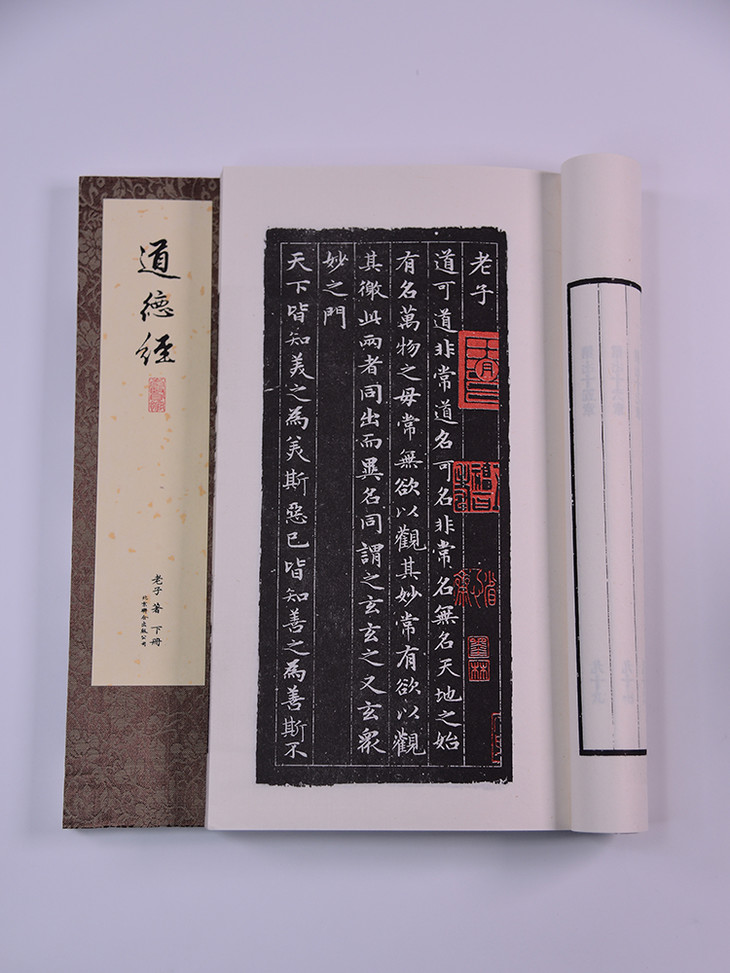 道德經
老子 著 下冊
北京聯合出版公司
老子
道可道非常道名可名非常名無名天地之始
有名萬物之母常無欲以觀其妙常有欲以觀
其徼此兩者同出而異名同謂之玄玄之又玄衆
妙之門
天下皆知美之為美斯惡已皆知善之為善斯不